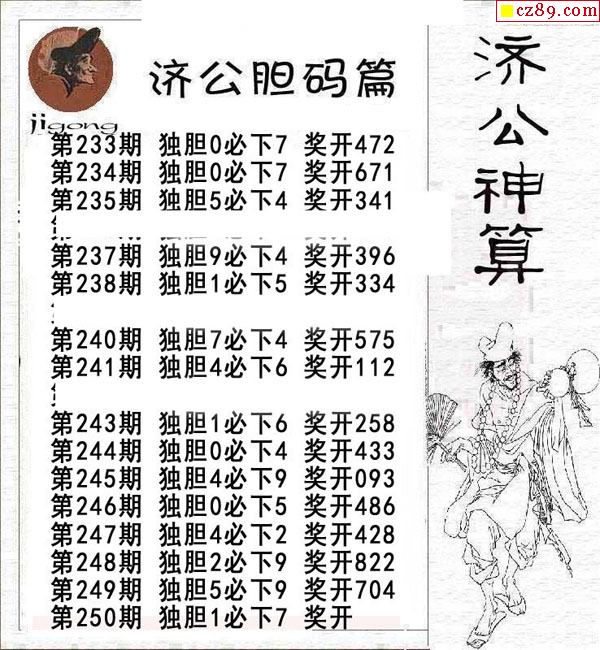 cz89.com
济公胆码篇
jigong
第233期 独胆0必下7 奖开472
第234期 独胆0必下7 奖开671
第235期 独胆5必下4 奖开341
第237期 独胆9必下4 奖开396
第238期 独胆1必下5 奖开334
第240期 独胆7必下4 奖开575
第241期 独胆4必下6 奖开112
第243期 独胆1必下6 奖开258
第244期 独胆0必下4 奖开433
第245期 独胆4必下9 奖开093
第246期 独胆0必下5 奖开486
第247期 独胆4必下2 奖开428
第248期 独胆2必下9 奖开822
第249期 独胆5必下9 奖开704
第250期 独胆1必下7 奖开
济公神算